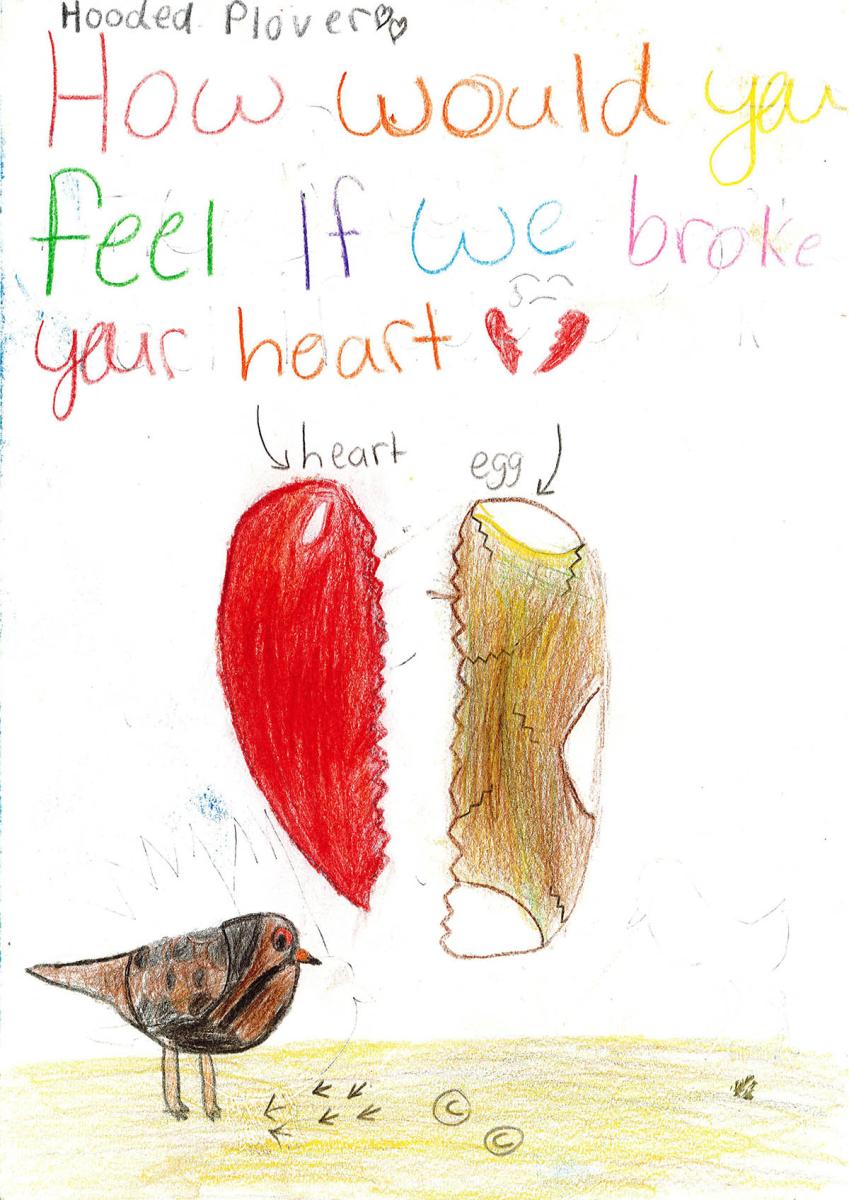 Hooded Plover
How would you
feel If we broke
your heart
heart egg
©
©